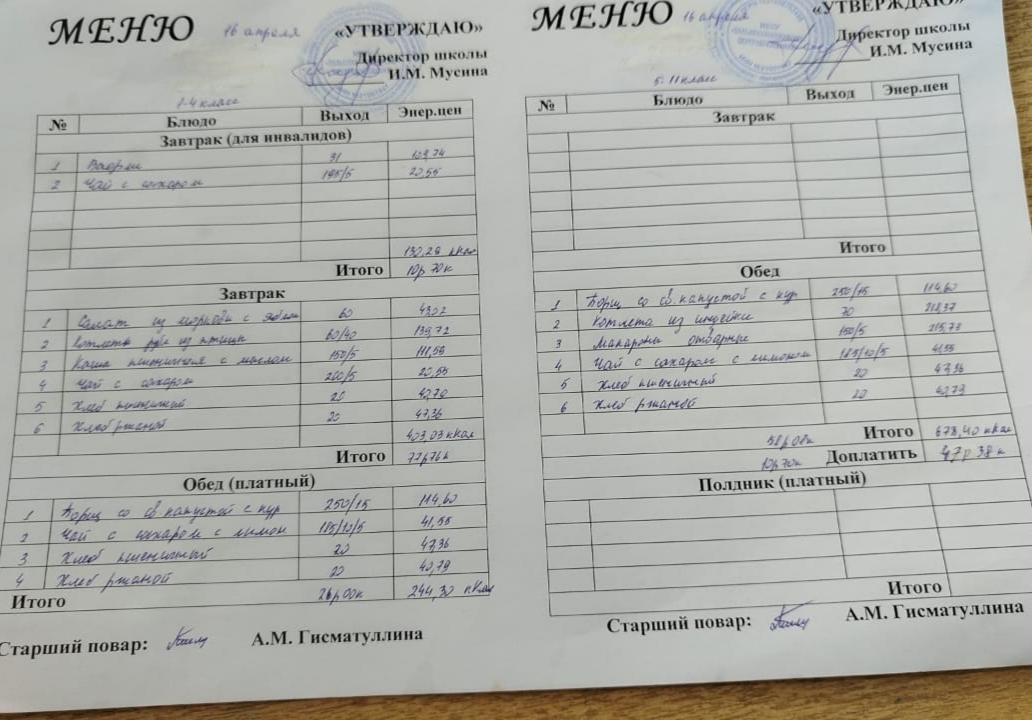 МЕНЮ 16 апреля «УТВЕРЖДАЮ»
Директор школы
И.М. Мусина
1-4 класс
№ Блюдо Выход Энер.цен
Завтрак (для инвалидов)
1 Вафли 31 109,74
2 Чай с сахаром 195/5 20,55
130,29 кКал
Итого 10р 70к
Завтрак
1 Салат из моркови с яблок 60
2 Котлета руб из птицы 60/40 139,72
3 Каша пшеничная с маслом 150/5 111,58
4 Чай с сахаром 200/5 20,55
5 Хлеб пшеничный 20
6 Хлеб ржаной 20 47,36
403,03 кКал
Итого 77р76к
Обед (платный)
1 Борщ со св.капустой с кур 250/15 114,60
2 Чай с сахаром с лимон 185/10/5 41,55
3 Хлеб пшеничный 20 47,36
4 Хлеб ржаной 20 40,79
Итого 26р00к 244,30 кКал
Старший повар: А.М. Гисматуллина
МЕНЮ 16 апреля «УТВЕРЖДАЮ»
Директор школы
И.М. Мусина
5-11 класс
№ Блюдо Выход Энер.цен
Завтрак
Итого
Обед
1 Борщ со св.капустой с кур 250/15 114,60
2 Котлета из индейки 70 218,37
3 Макароны отварные 150/5 215,73
4 Чай с сахаром с лимоном 185/10/5 41,55
5 Хлеб пшеничный 20 47,36
6 Хлеб ржаной 20
58р08к Итого 678,40 кКал
10р70к Доплатить 47р 38к
Полдник (платный)
Итого
Старший повар: А.М. Гисматуллина